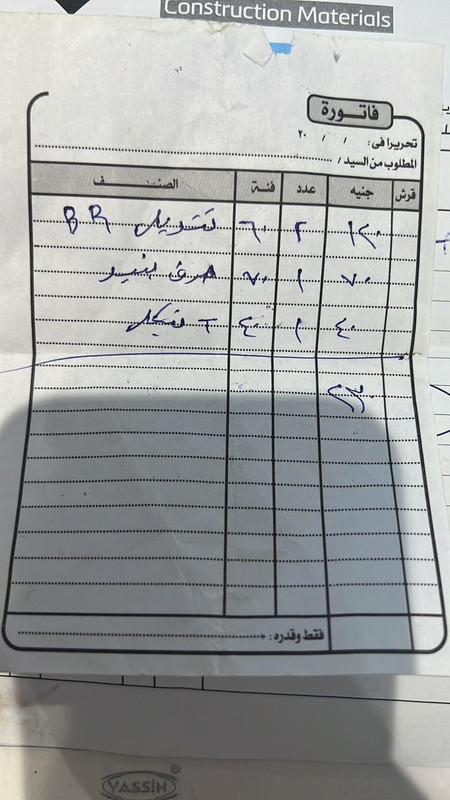 Construction Materials
فاتورة
تحريرا فى: / / ٢٠
المطلوب من السيد/
قرش جنيه عدد فئة الصنف
١٢٠ ٢ ٦٠ BR
٧٠ ١ ٧٠ صرف بنيو
٤٠ ١ ٤٠ T نيكل
٢٣٠
فقط وقدره:
YASSIN®